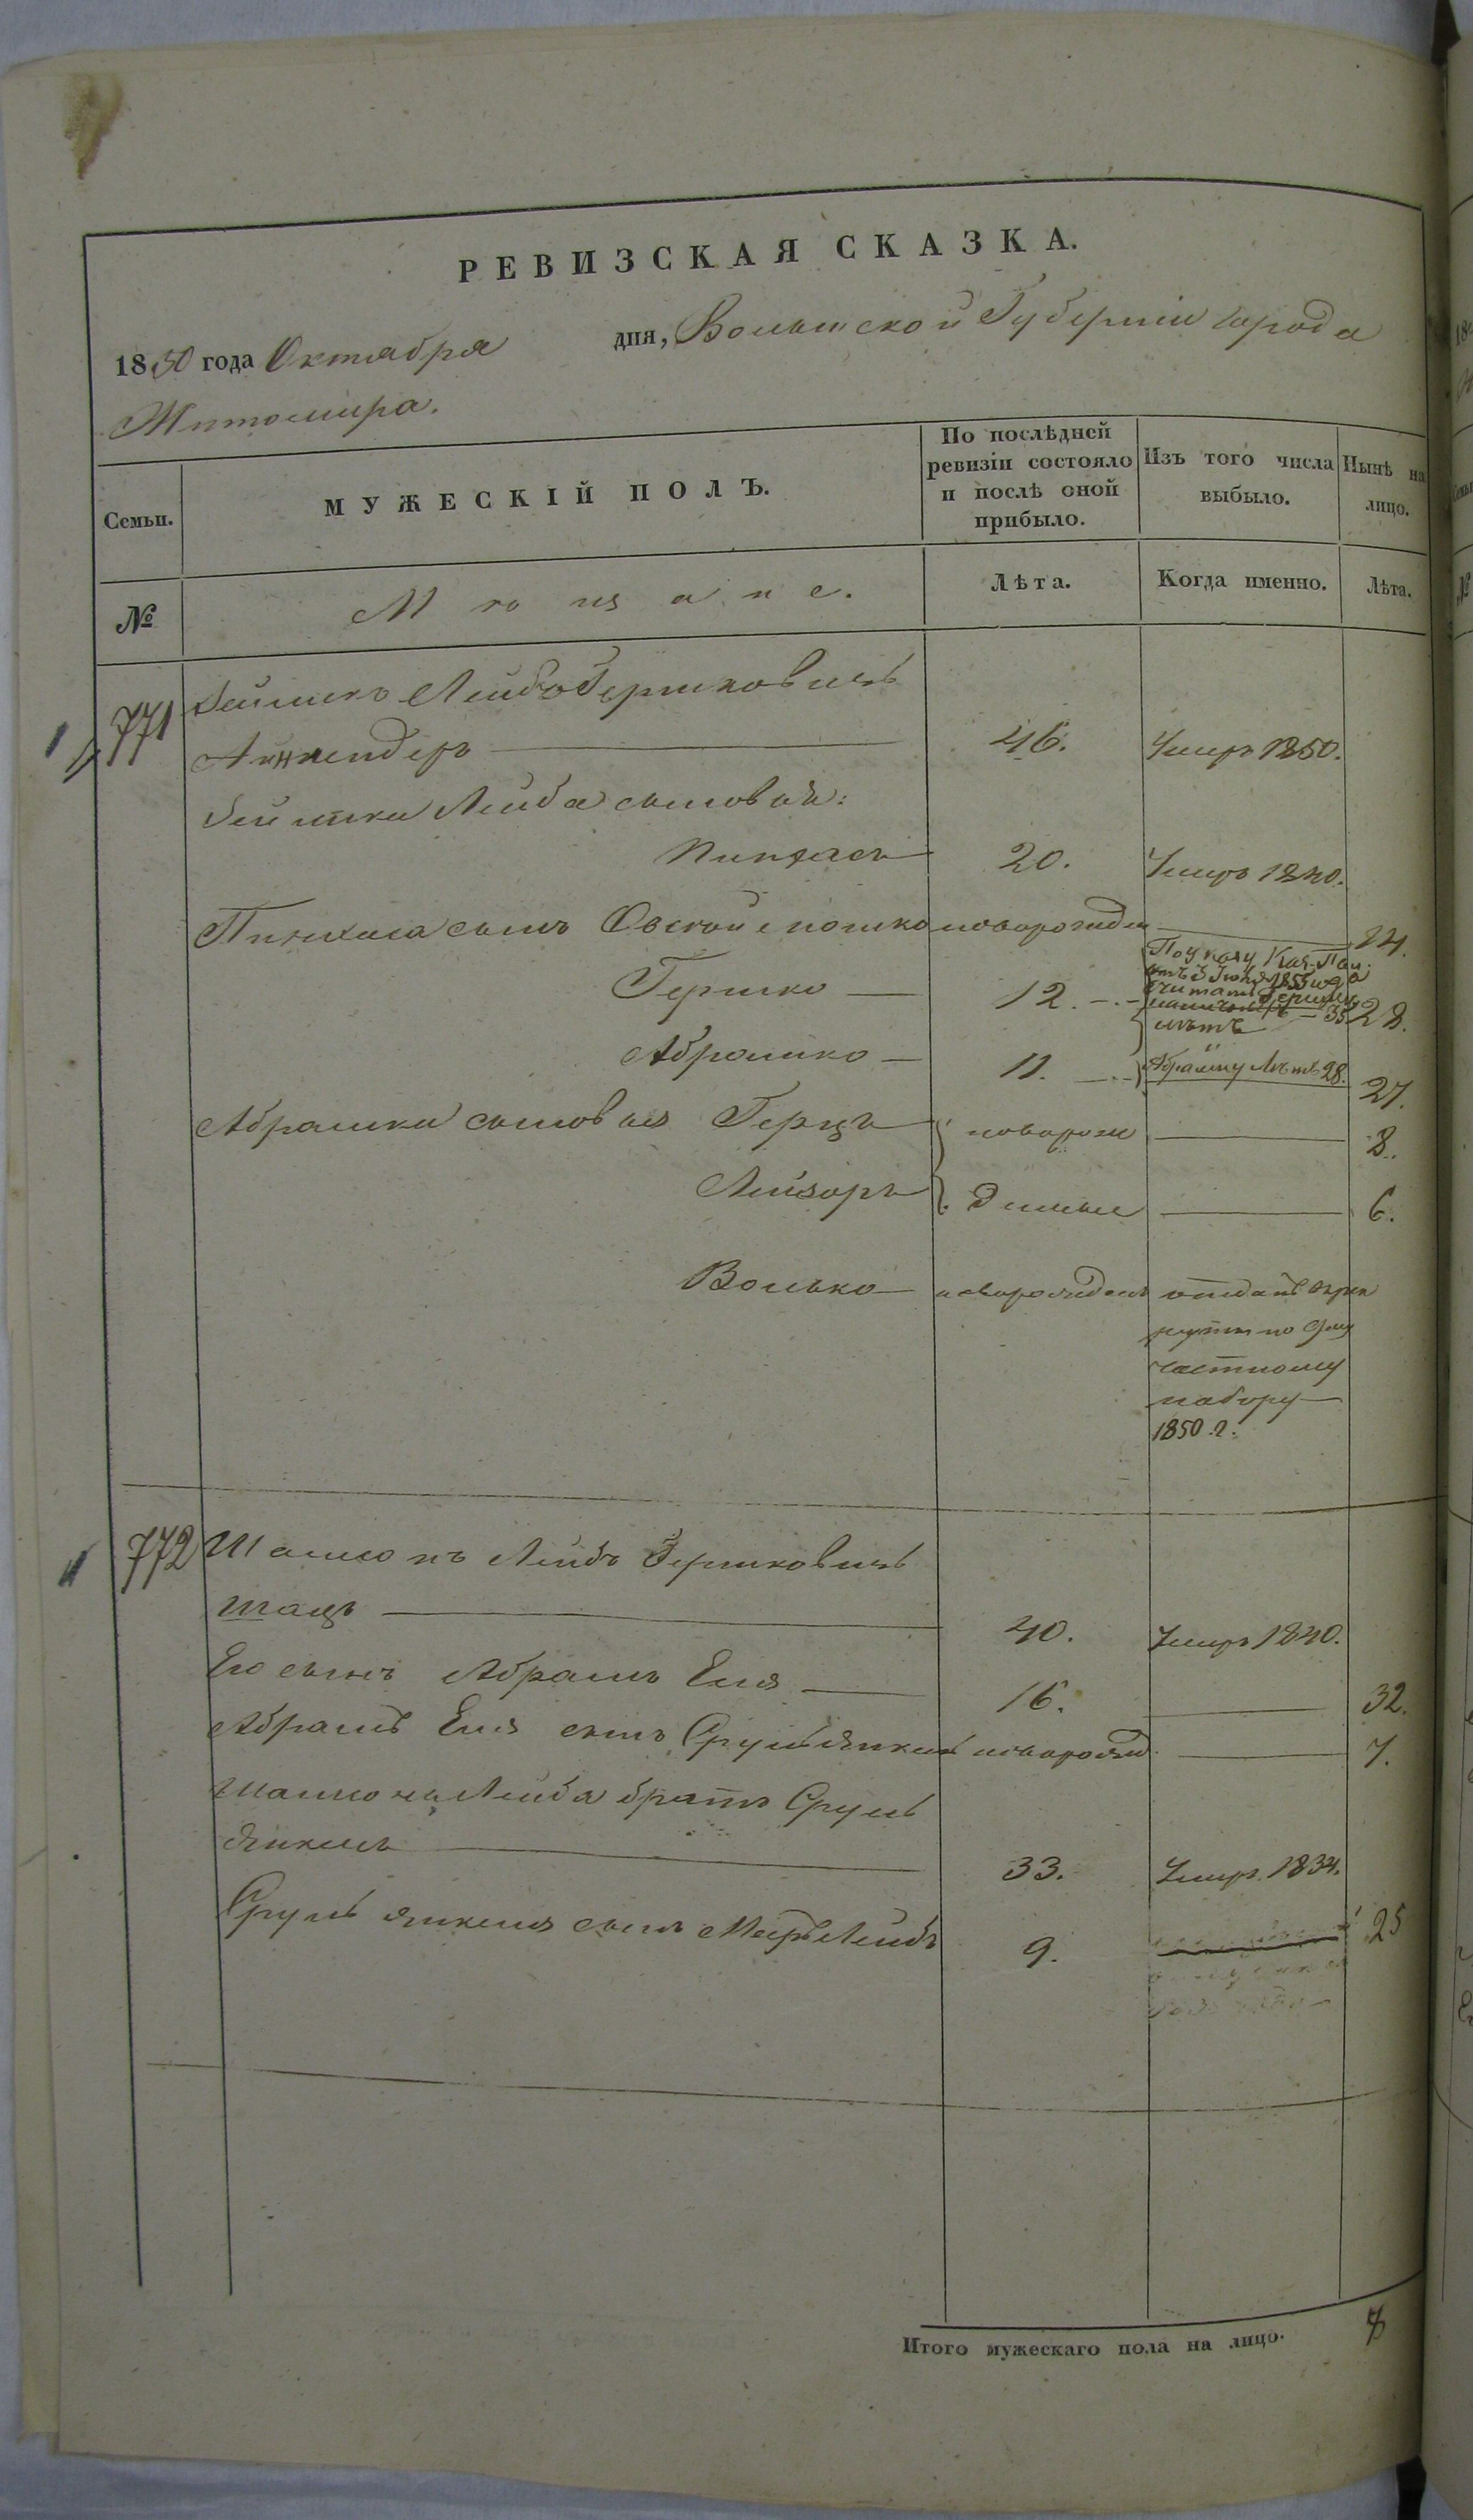 РЕВИЗСКАЯ СКАЗКА.
1850 года Октября дня, Волынской Губерніи города
Житомира.
Семьи.
МУЖЕСКІЙ ПОЛЪ.
По послѣдней ревизіи состояло и послѣ оной прибыло.
Изъ того числа выбыло.
Нынѣ на лицо.
№
Мѣщане.
Лѣта.
Когда именно.
Лѣта.
771 Лейбъ Гершковичъ
46. Умеръ 1850.
Лейба сыновья:
Пинхасъ 20. Умеръ 1840.
Пинхаса сынъ Овсей новорожден 14.
По указу Каз. Пал.
Гершко 12. 28.
лѣтъ
Абрамко 11. Абрамку лѣтъ 28. 27.
Абрамка сыновья Герцъ новорож 8.
Лейзоръ денные 6.
Волько новорожденъ отданъ в рек
руты по
частному
набору
1850 г.
772 Шаліонъ Лейбъ Гершковичъ
Шацъ 40. Умеръ 1840.
Его сынъ Абрамъ Еля 16. 32.
Абрамъ Еля сынъ Сруль Янкель новорожд. 7.
Шаліона Лейба братъ Сруль
Янкель 33. Умеръ 1834.
Сруль Янкеля сынъ Меръ Лейбъ 9. 25
Итого мужескаго пола на лицо.